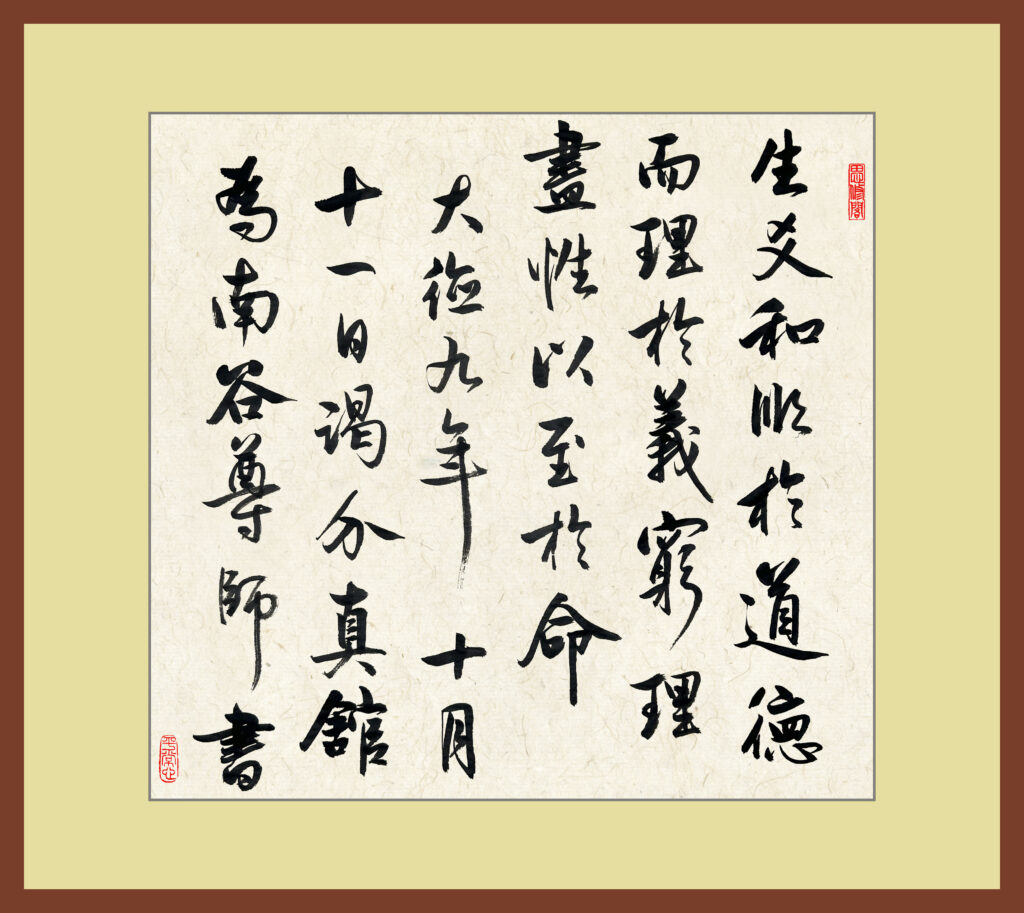 思修閣
生爻和順於道德
而理於義窮理
盡性以至於命
大德九年 十月
十一日謁分真館
為南谷尊師書